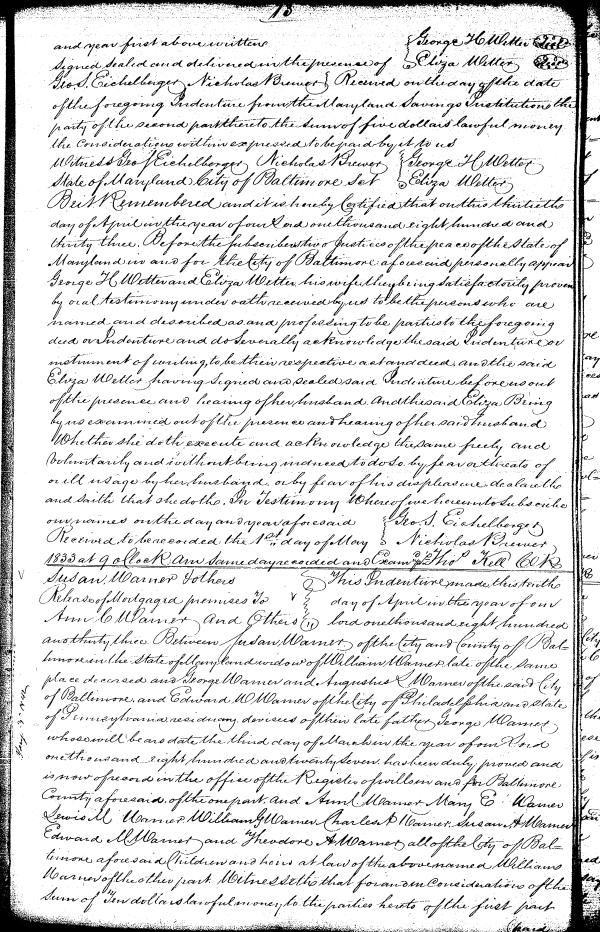 15
and year first above written { George H Wetter Seal
Signed sealed and delivered in the presence of { Eliza Wetter Seal
Geo. S. Eichelberger Nicholas Brewer } Received on the day of the date
of the foregoing Indenture from the Maryland Savings Institution the
party of the second part thereto the sum of five dollars lawful money
the considerations within expressed to be paid by it to us
Witness Geo S Eichelberger Nicholas Brewer { George H Wetter
State of Maryland City of Baltimore Sct { Eliza Wetter
Be it Remembered and it is hereby Certified that on this thirtieth
day of April in the year of our Lord one thousand eight hundred and
thirty three, Before the subscribers two Justices of the peace of the State of
Maryland in and for the City of Baltimore aforesaid personally appear
George H Wetter and Eliza Wetter his wife they being satisfactorily proven
by oral testimony under oath received by us to be the persons who are
named and described as and professing to be parties to the foregoing
deed or Indenture and do severally acknowledge the said Indenture or
instrument of writing, to be their respective act and deed and the said
Eliza Wetter having signed and sealed said Indenture before us out
of the presence and hearing of her husband And the said Eliza Being
by us examined out of the presence and hearing of her said husband
Whether she doth execute and acknowledge the same freely and
voluntarily and without being induced to do so by fear or threats of
or ill usage by her husband or by fear of his displeasure declareth
and saith that she doth. In Testimony Whereof we hereunto subscribe
our names on the day and year aforesaid { Geo. S. Eichelberger
Received to be recorded the 1st day of May { Nicholas Brewer
1833 at 9 oClock Am Same day recorded and Examd pr Thos Kell Clk
Susan Warner & others This Indenture made this tenth
Release of Mortgaged premises To day of April in the year of our
Ann C Warner and Others lord one thousand eight hundred
and thirty three Between Susan Warner of the City and County of Bal-
timore in the State of Maryland widow of William Warner late of the same
place deceased and George Warner and Augustus L Warner of the said City
of Baltimore and Edward W Warner of the City of Philadelphia and state
of Pennsylvania residuary devisees of their late father George Warner
whose will bears date the third day of March in the year of our Lord
one thousand eight hundred and twenty seven has been duly proved and
is now of record in the office of the Register of wills in and for Baltimore
County aforesaid of the one part and Ann C Warner Mary E Warner
Lewis M Warner William G Warner Charles A Warner Susan A Warner
Edward M Warner and Theodore A Warner all of the City of Bal-
timore aforesaid Children and heirs at law of the above named William
Warner of the other part Witnesseth that for and in Considerations of the
Sum of Ten dollars lawful money to the parties hereto of the first part
paid